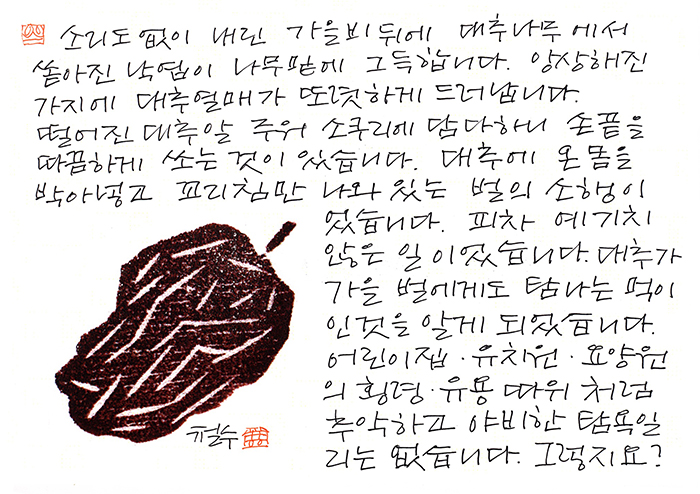 소리도 없이 내린 가을비 뒤에 대추나무에서
쏟아진 낙엽이 나무밑에 그득합니다. 앙상해진
가지에 대추열매가 또렷하게 드러납니다.
떨어진 대추알 주워 소쿠리에 담다하니 손끝을
따끔하게 쏘는 것이 있습니다. 대추에 온몸을
박아넣고 꼬리침만 나와 있는 벌의 소행이
었습니다. 피차 예기치
않은 일이었습니다. 대추가
가을 벌에게도 탐나는 먹이
인것을 알게 되었습니다.
어린이집·유치원·요양원
의 횡령·유용 따위 처럼
추악하고 야비한 탐욕일
리는 없습니다. 그렇지요?
철수